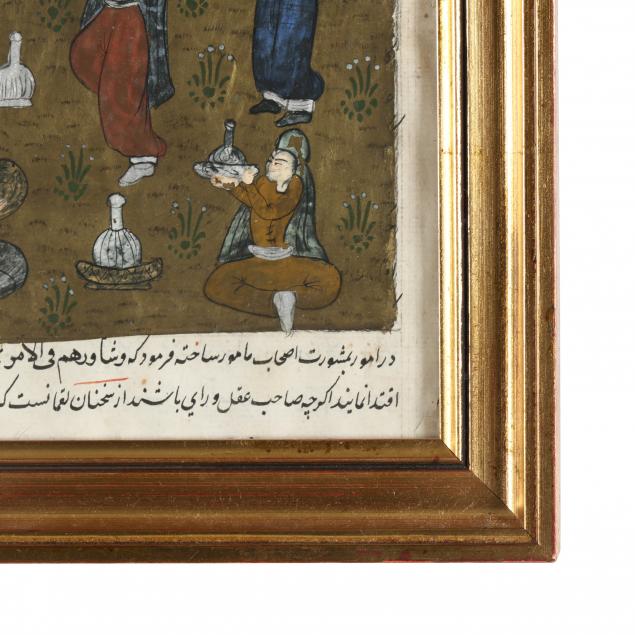 در امور بمشورت اصحاب مامور ساخته فرمود که و شاورهم فی الامر
اقتدا نمایند اگرچه صاحب عقل و رای باشند از سخنان لقمانست که